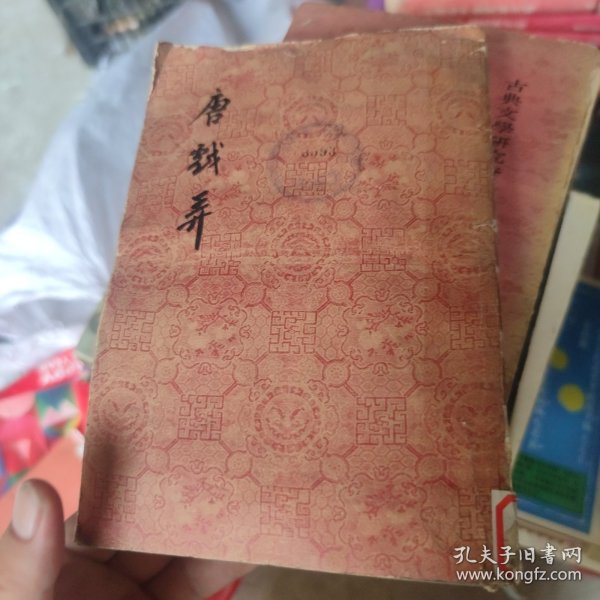 唐戯弄
3393
古典文學研究
孔夫子旧书网
www.kongfz.com